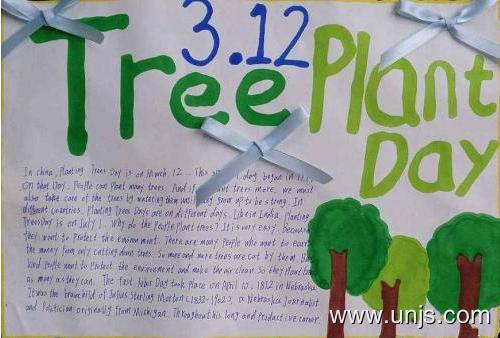 3.12
Tree Plant
Day
In china, Planting Trees Day is on March 12. This day began in
on that Day. People can plant many trees. And if trees more, we must
also take care of the trees by watering them until they grow up to be strong. In
different countries. Planting Tree Days are on different days. Like in India, Planting
Trees Day is on July 1. Why do the People plant trees? It is very easy. Because
they want to Protect the environment. There are many People who want to earn
the money from only cutting down trees. So more and more trees are cut by them. But
kind People want to Protect the environment and make the air clean. So they plant trees
as many as they can. The first Day took place on April 10, 1872 in Nebraska.
It was the brainchild of Julius Sterling Morton (1832-1902), a Nebraska Journalist
and Politician originally from Michigan. Throughout his long and productive career.
www.unjs.com